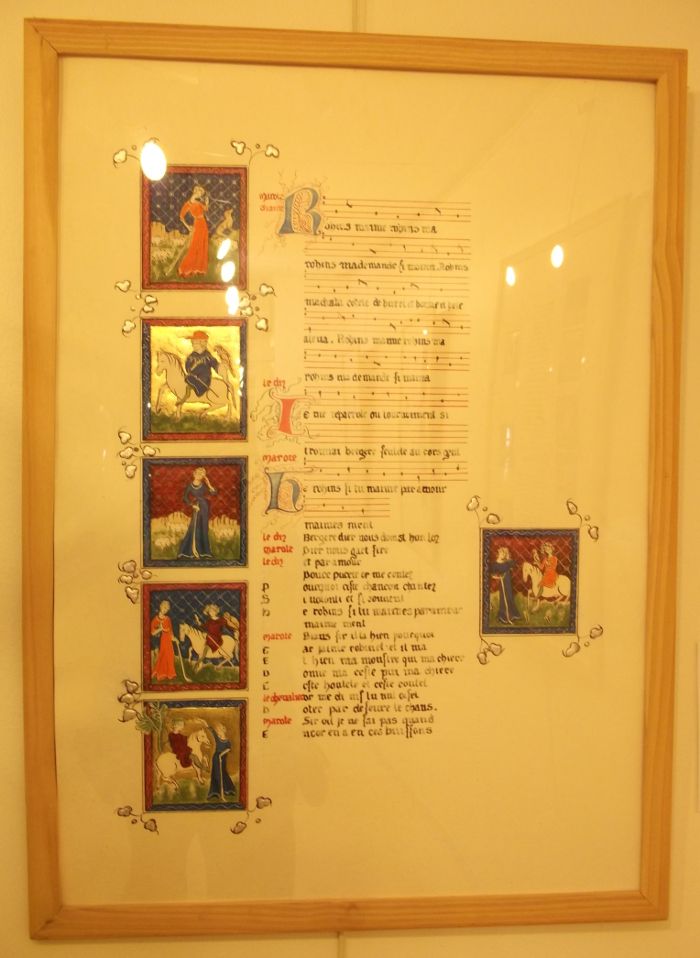 marote
chante
Robins maime robins ma
robins ma demande si maura. Robins
machata cotele de burel et bonne
Robins maime robins ma
robins ma demande si maura
le chr
Je me repairole du tournoiement si
trouvai bergere seulete au cors gent
marote
He robins si tu maimes par amour
maimes ment
le chr Bergere dier nous doinst bon Ior
marote Dier nous gart sire
le chr et par amour
Douce pucele or me contez
Pourquoi ceste chancon chantez
Si volonti et si souvent
He robins si tu maimes par amour
maime ment
marote Biaus sir il ia bien pourquoi
Car jaime robinet et il ma
E t bien ma monstre qui ma chiere
Donne ma ceste ma chiere
Ceste houlete et ceste coutel
le chevalier or me di
D oler par deseure le chans.
marote Sir oil je ne sai pas quans
Encor en a en ces buissons